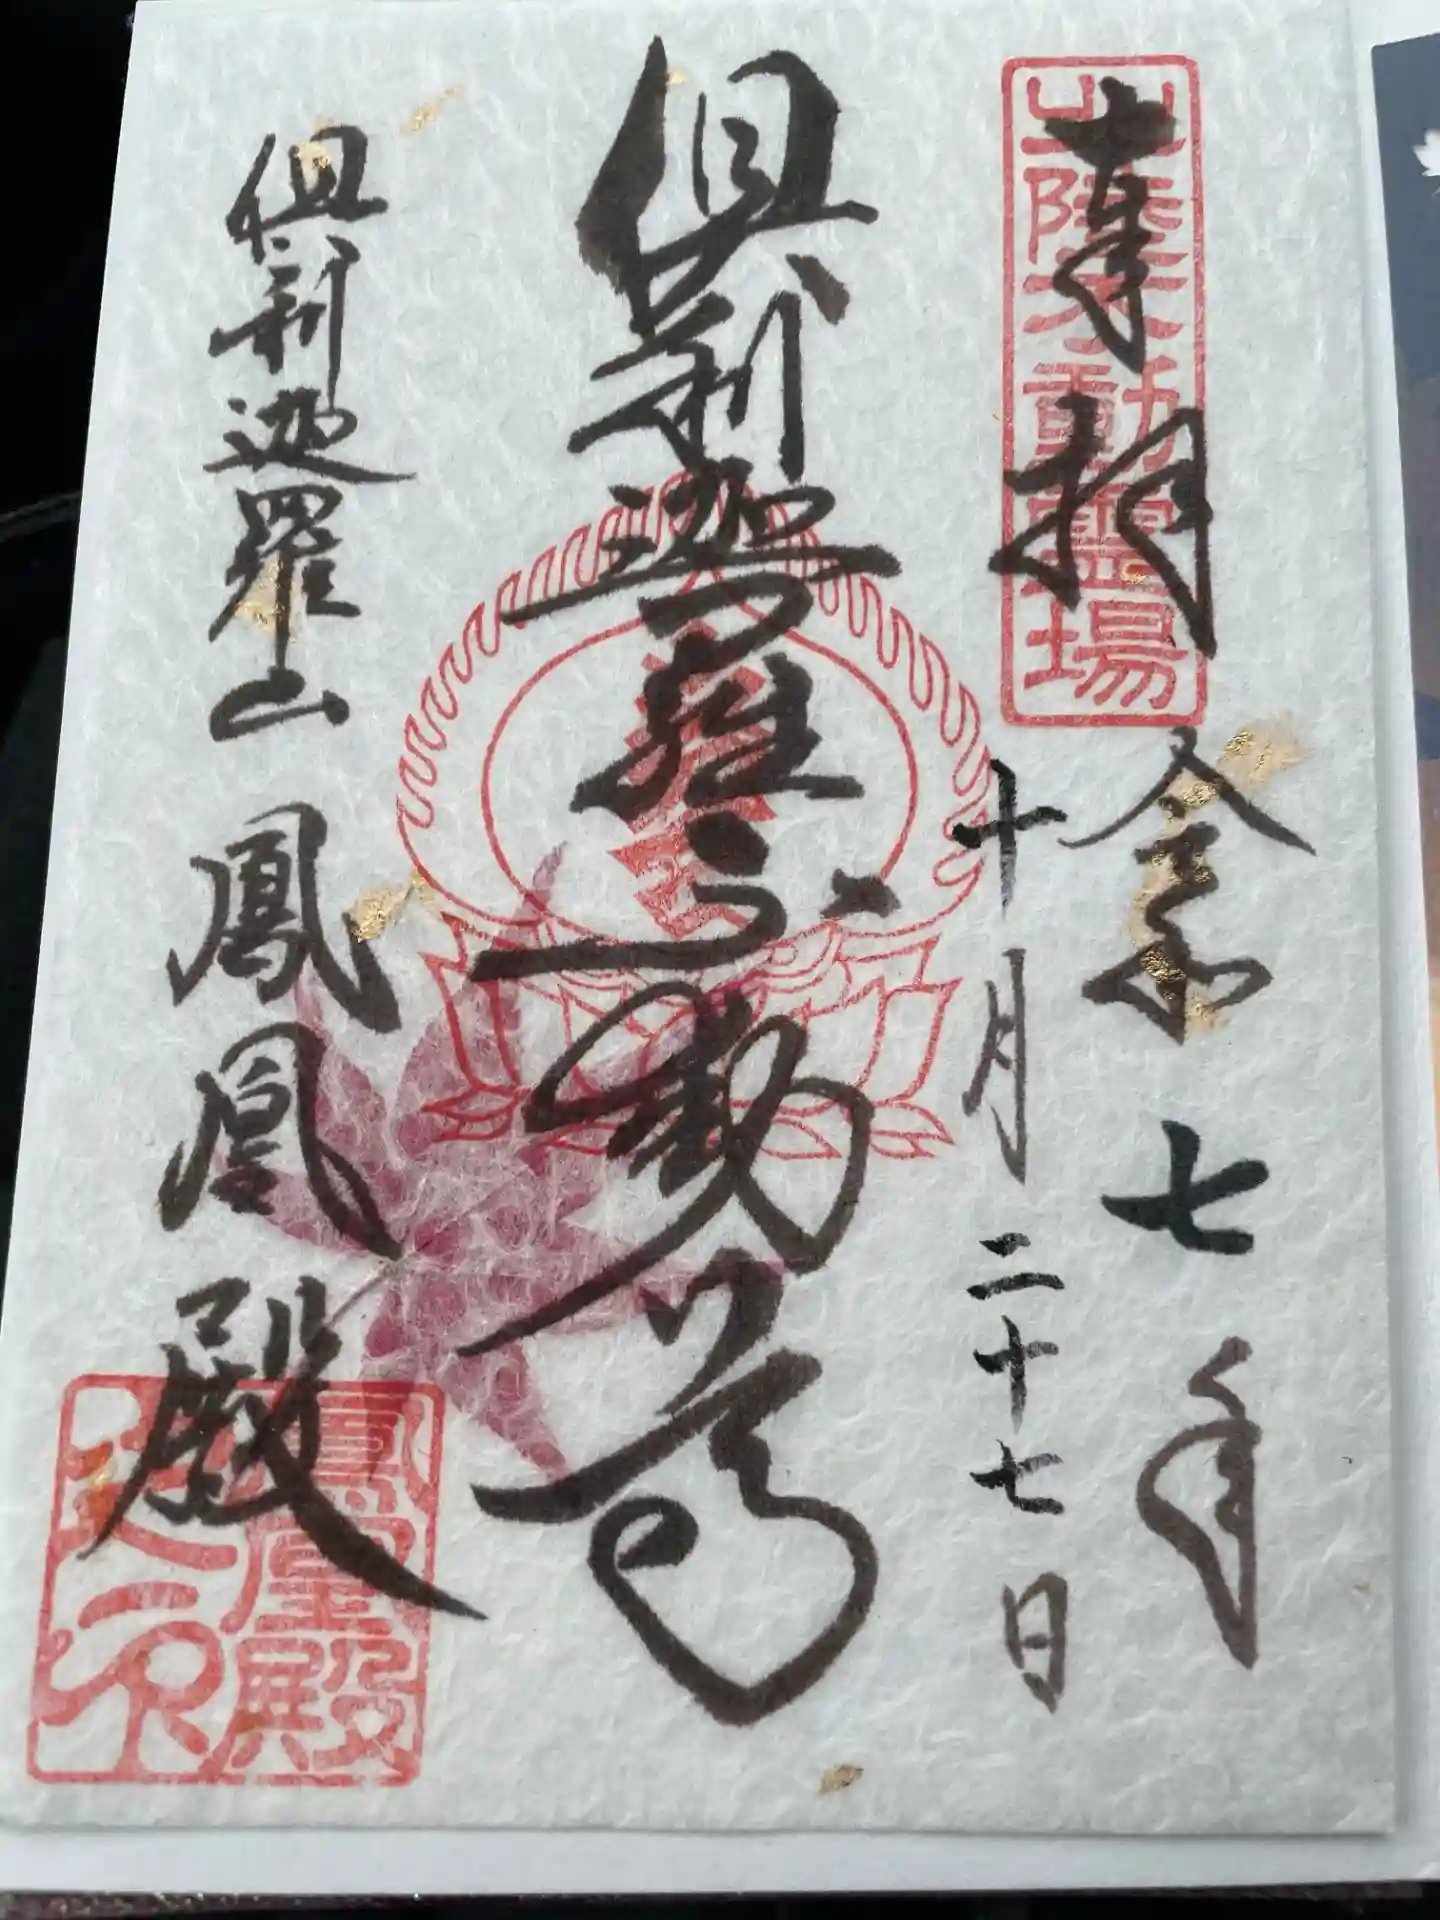 奉拝
北陸不動霊場
令和七年
十月二十七日
倶利迦羅不動尊
倶利迦羅山 鳳凰殿
鳳凰殿